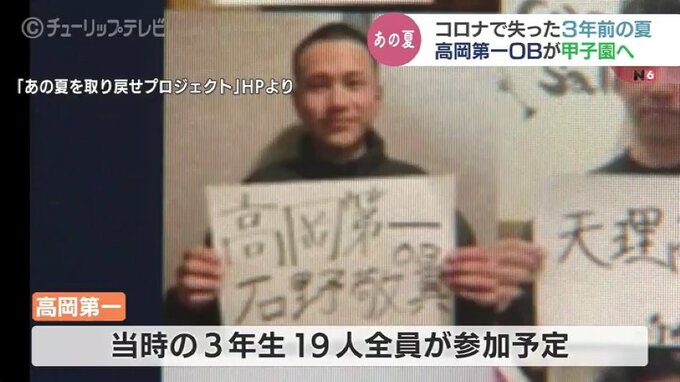 チューリップテレビ
あの夏
コロナで失った3年前の夏
高岡第一OBが甲子園へ
N6
「あの夏を取り戻せプロジェクト」HPより
高岡第一
OB
石野敬眞
天理
高岡第一
当時の3年生19人全員が参加予定